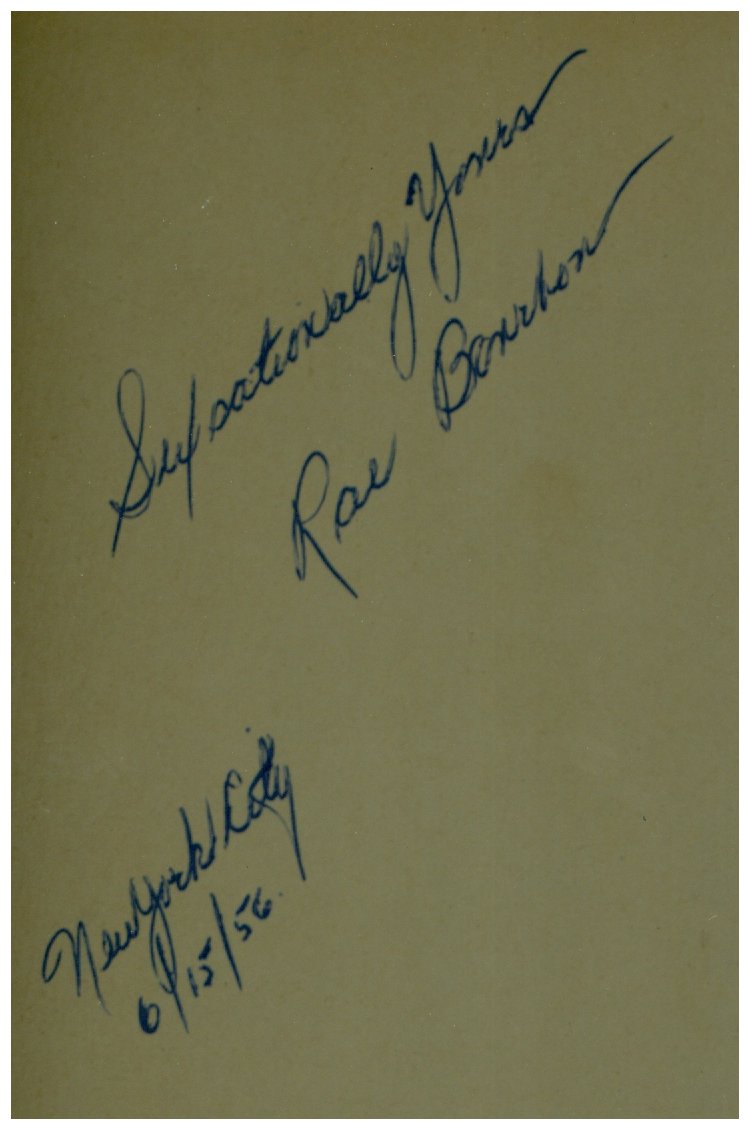 Sexsationally Yours
Rae Bourbon
New York City
6/15/56.